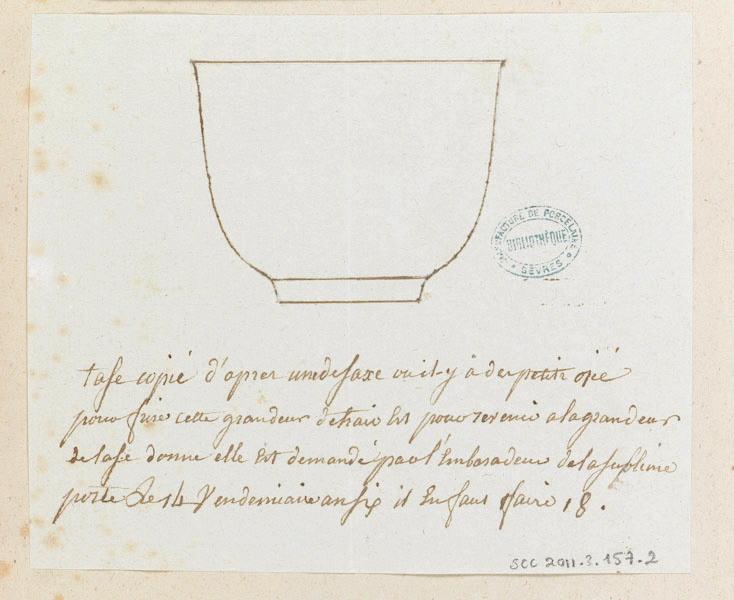 MANUFACTURE DE PORCELAINE
BIBLIOTHÈQUE
SÈVRES
tase copié d'apres une de saxe ou il y à des petits
pour fuire cette grandeur de trait Est pour revenir a la grandeur
de lase donné elle Est demandé par l'Embasadeur de la sublime
porte Le 14 Vendemiaire an six il En faut faire 18.
SCC 2011.3.157.2